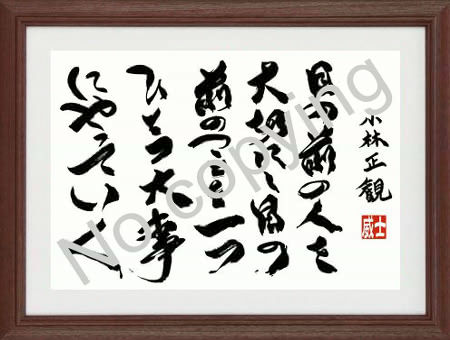 小林正観
目の前の人を
大切にし目の
前のこと一つ
ひとつ大事
にやっていく
No copying